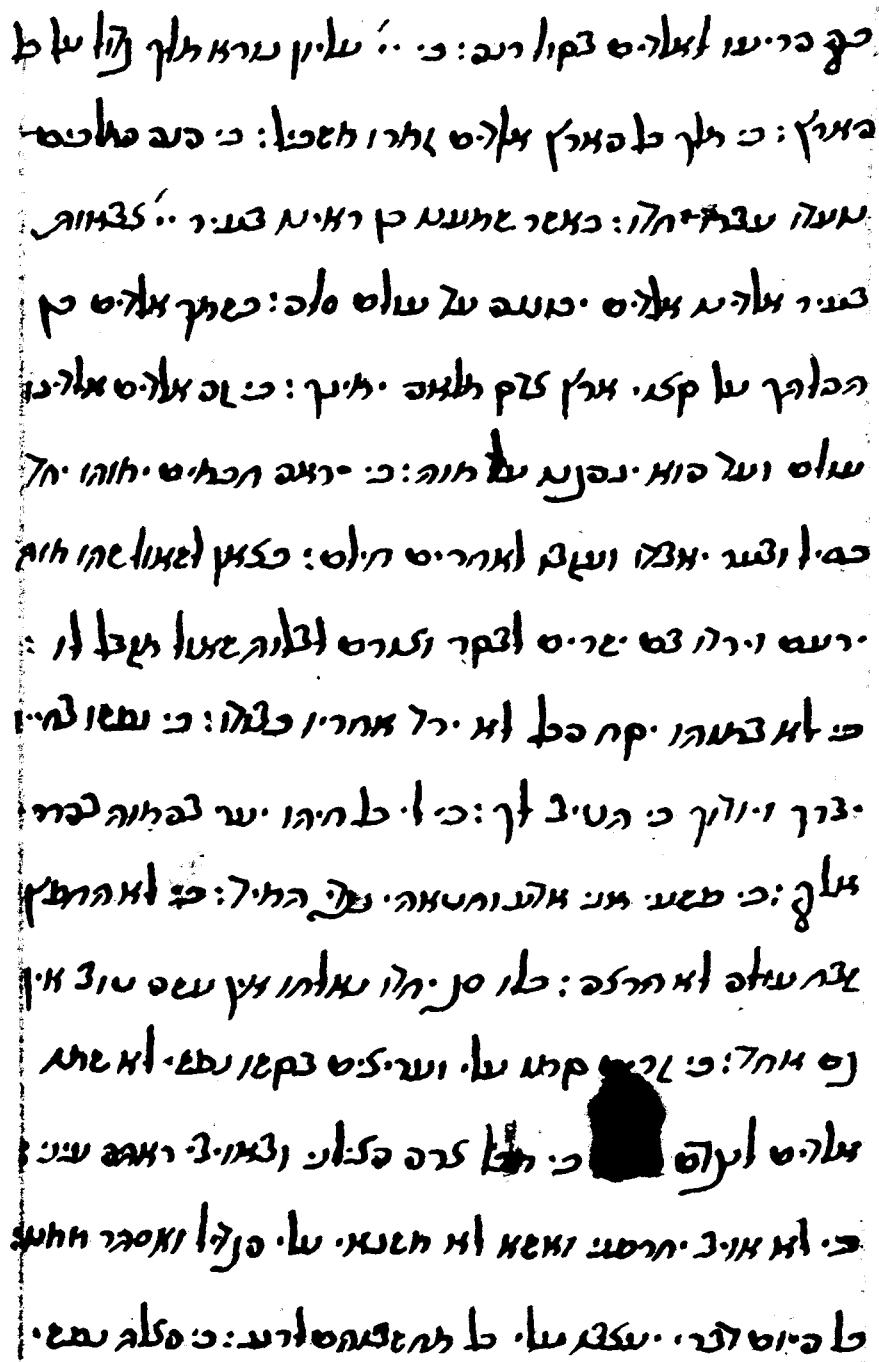 כף הריעו לאלהים בקול רנה: כי יי' עליון נורא מלך גדול על כל
הארץ: כי מלך כל הארץ אלהים זמרו משכיל: כי הנה המלכים
נועדו עברו יחדו: כאשר שמענו כן ראינו בעיר יי' צבאות
בעיר אלהינו אלהים יכוננה עד עולם סלה: כשמך אלהים כן
תהלתך על קצוי ארץ צדק מלאה ימינך: כי זה אלהים אלהינו
עולם ועד הוא ינהגנו על מות: כי יראה חכמים ימותו יחד
כסיל ובער יאבדו ועזבו לאחרים חילם: כצאן לשאול שתו מות
ירעם וירדו בם ישרים לבקר וצורם לבלות שאול מזבל לו:
כי לא במותו יקח הכל לא ירד אחריו כבודו: כי נפשו בחייו
יברך ויודוך כי תטיב לך: כי לי כל חיתו יער בהמות בהררי
אלף: כי פשעי אני אדע וחטאתי נגדי תמיד: כי לא תחפץ
זבח עולה לא תרצה: כלו סג יחדו נאלחו אין עשה טוב אין
גם אחד: כי זרים קמו עלי ועריצים בקשו נפשי לא שמו
אלהים לנגדם כי מכל צרה הצילני ובאויבי ראתה עיני:
כי לא אויב יחרפני ואשא לא משנאי עלי הגדיל ואסתר ממנו:
כל היום דברי יעצבו עלי כל מחשבותם לרע: כי הצלת נפשי